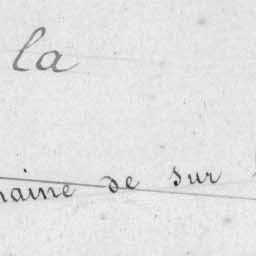 la
haine de sur